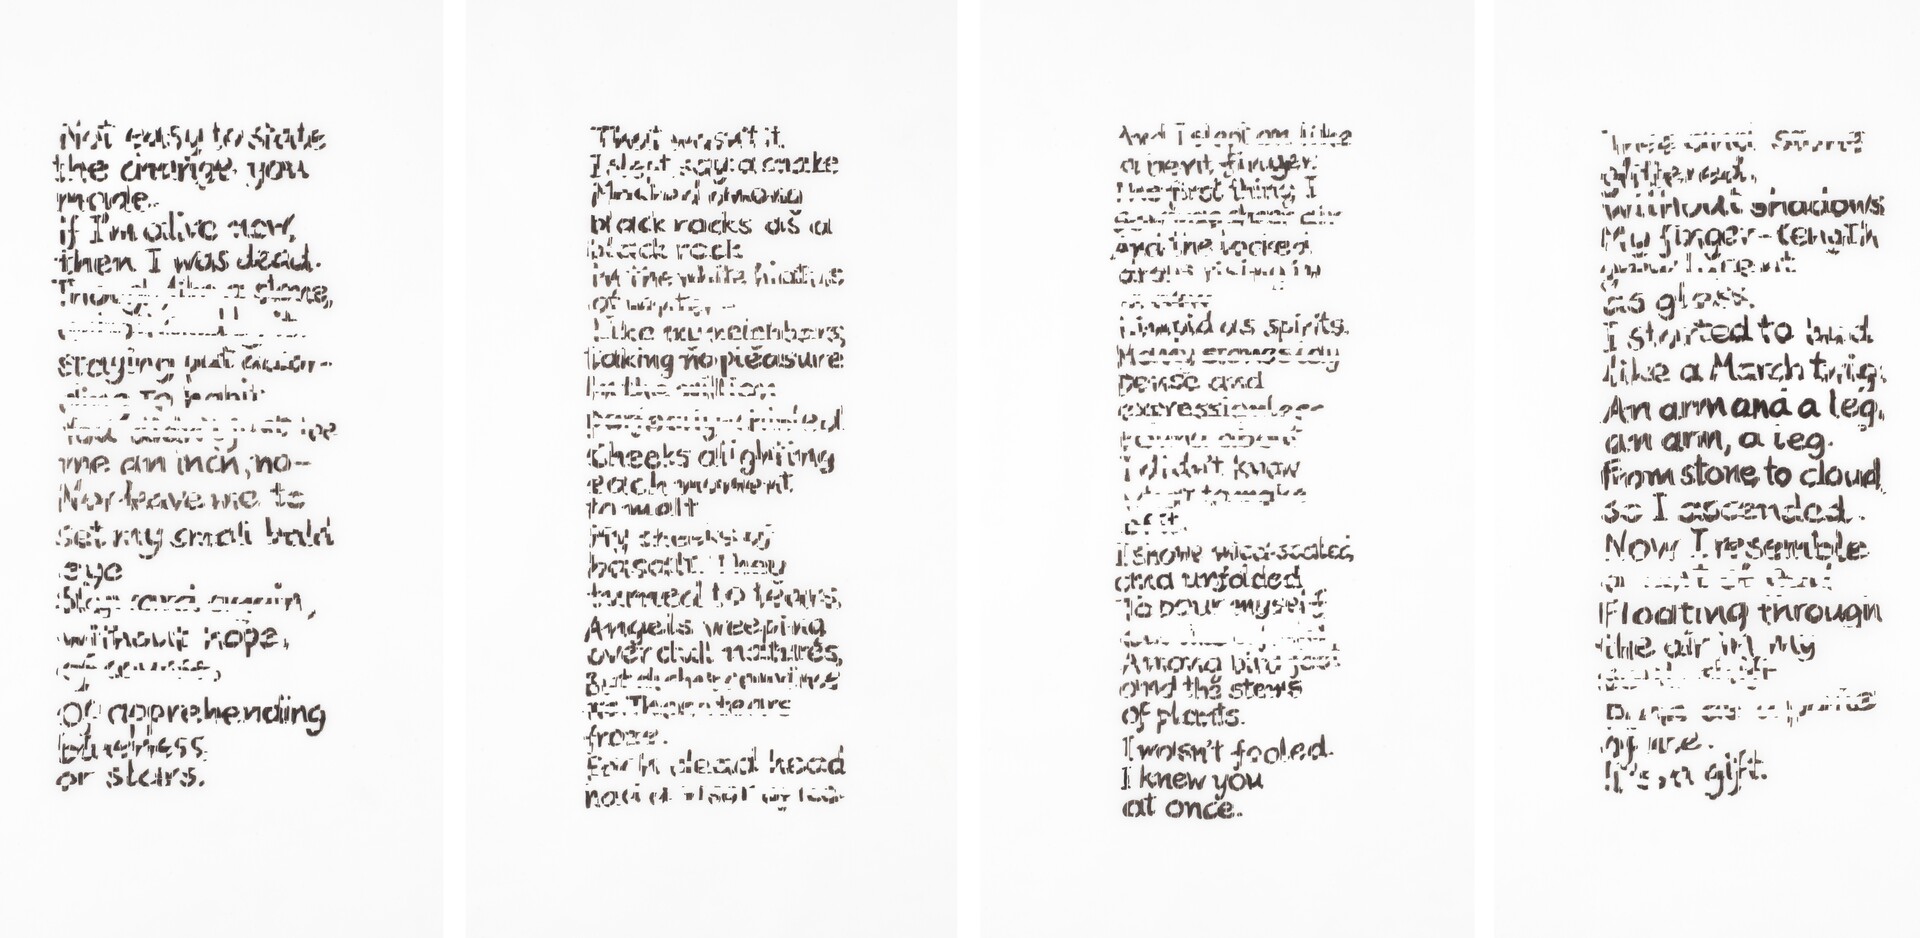 Not easy to state
the change you
made.
if I'm alive now,
then I was dead.
Though, like a stone,
staying put accor-
ding to habit
You didn't just toe
me an inch, no-
Nor leave me to
set my small bald
eye
Skyward again,
without hope,
of course,
of apprehending
blueness
or stars.
That wasn't it.
I slept, say: a snake
Masked among
black rocks as a
black rock
in the white hiatus
of winter -
Like my neighbors,
taking no pleasure
In the million
perfectly-chiseled
Cheeks alighting
each moment
to melt
My cheeks of
basalt. They
turned to tears,
Angels weeping
over dull natures,
But didn't convince
me. Those tears
froze.
Each dead head
had a visor of ice
And I slept on like
a bent finger.
The first thing I
was air
And the locked
drops rising in
Limpid as spirits.
Many stones lay
Dense and
expressionless
round about
I didn't know
what to make
of it.
I shone, mica-scaled,
and unfolded
To pour myself
Among bird feet
and the stems
of plants.
I wasn't fooled.
I knew you
at once.
Tree and stone
glittered,
without shadows
My finger-length
grew lucent
as glass.
I started to bud
like a March twig:
An arm and a leg,
an arm, a leg.
From stone to cloud,
so I ascended.
Now I resemble
a sort of god
Floating through
the air in my
soul-shift
Pure as a pane
of ice.
It's a gift.